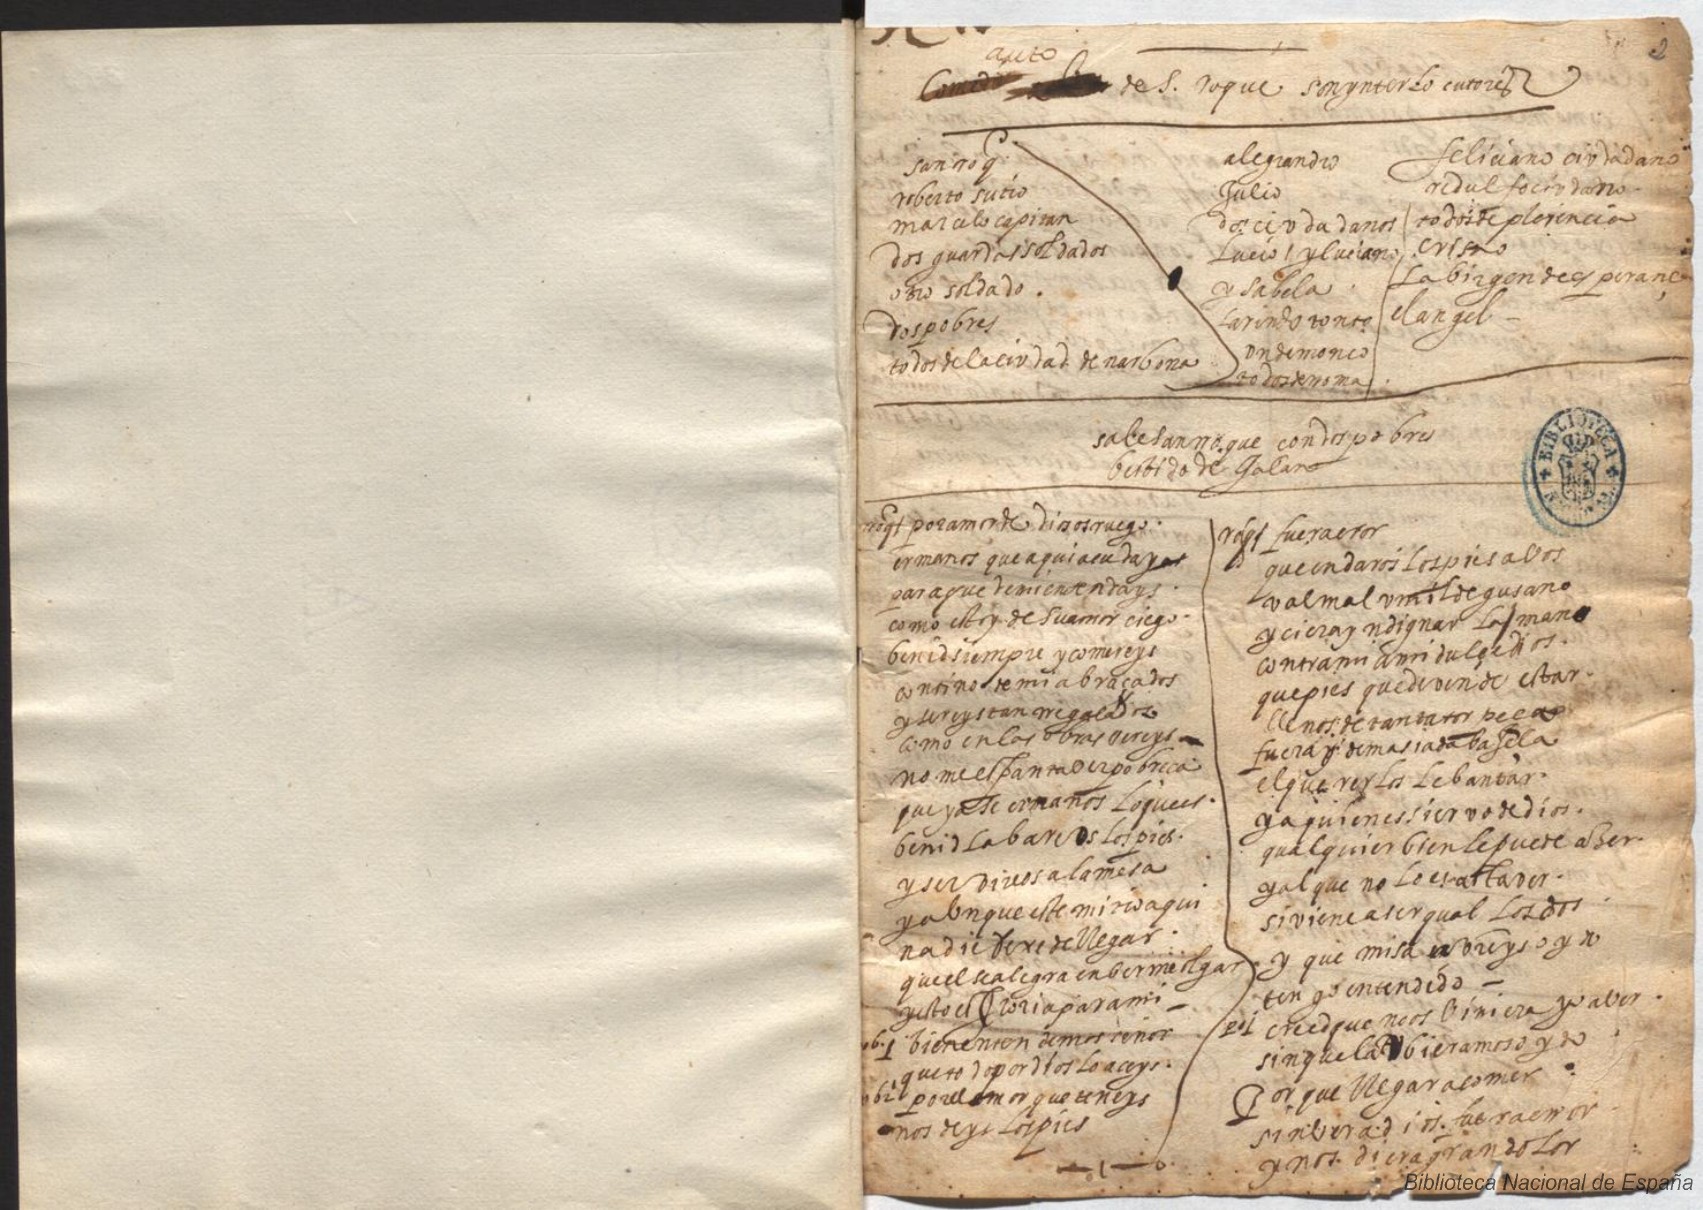 2
auto
Comedia de S. roque son ynterlocutores
san roq
roberto su tio
marculo capitan
dos guardas soldados
otro soldado.
dos pobres
todos de la ciudad de narbona
alegandro
Julio
dos ciudadanos
Lucio y luciano
ysabela.
tonto
un demonio
todos de roma.
feliciano ciudadano
ciudadano
todos de plorencia
cristo
La birgen de esperança
el angel
sale san rroque con dos pobres
bestido de Galan
roq por amor de dios os ruego.
ermanos que aqui acudays
para que de mi entendays.
como estoy de su amor ciego.
benid siempre y comereys
contino de mi abraçados
y sereys tan rregalados
como en las obras bereys
no me espanta ber pobreça
que ya se ermanos lo que es.
benid labareos los pies.
y serviros a la mesa
y aunque este mi tio aqui
nadie dexe de llegar.
que el se alegra en berme olgar
y esto es gloria para mi
ob. 1 bien entendemos señor
que todo por dios lo aceys.
ob 2 por el amor que teneys
nos deys los pies
roq fuera error
que en daros los pies a vos
un mal umilde gusano
y ciera yndignar la mano
contra mi a mi dulce dios.
que pies que deven de estar.
llenos de tanta torpeça
fuera demasiada bageça
el quererlos lebantar.
y a quien es siervo de dios.
qualquier bien le puede aber.
y al que no lo es
si viene a ser qual los dos.
y que misa oy
tengo entendido
po 1 creed que no os biniera yo a ber.
sin que la ubieramos oydo
Porque llegar a comer
sin ber a dios. fuera error
y nos. diera gran dolor
Biblioteca Nacional de España
BIBLIOTECA